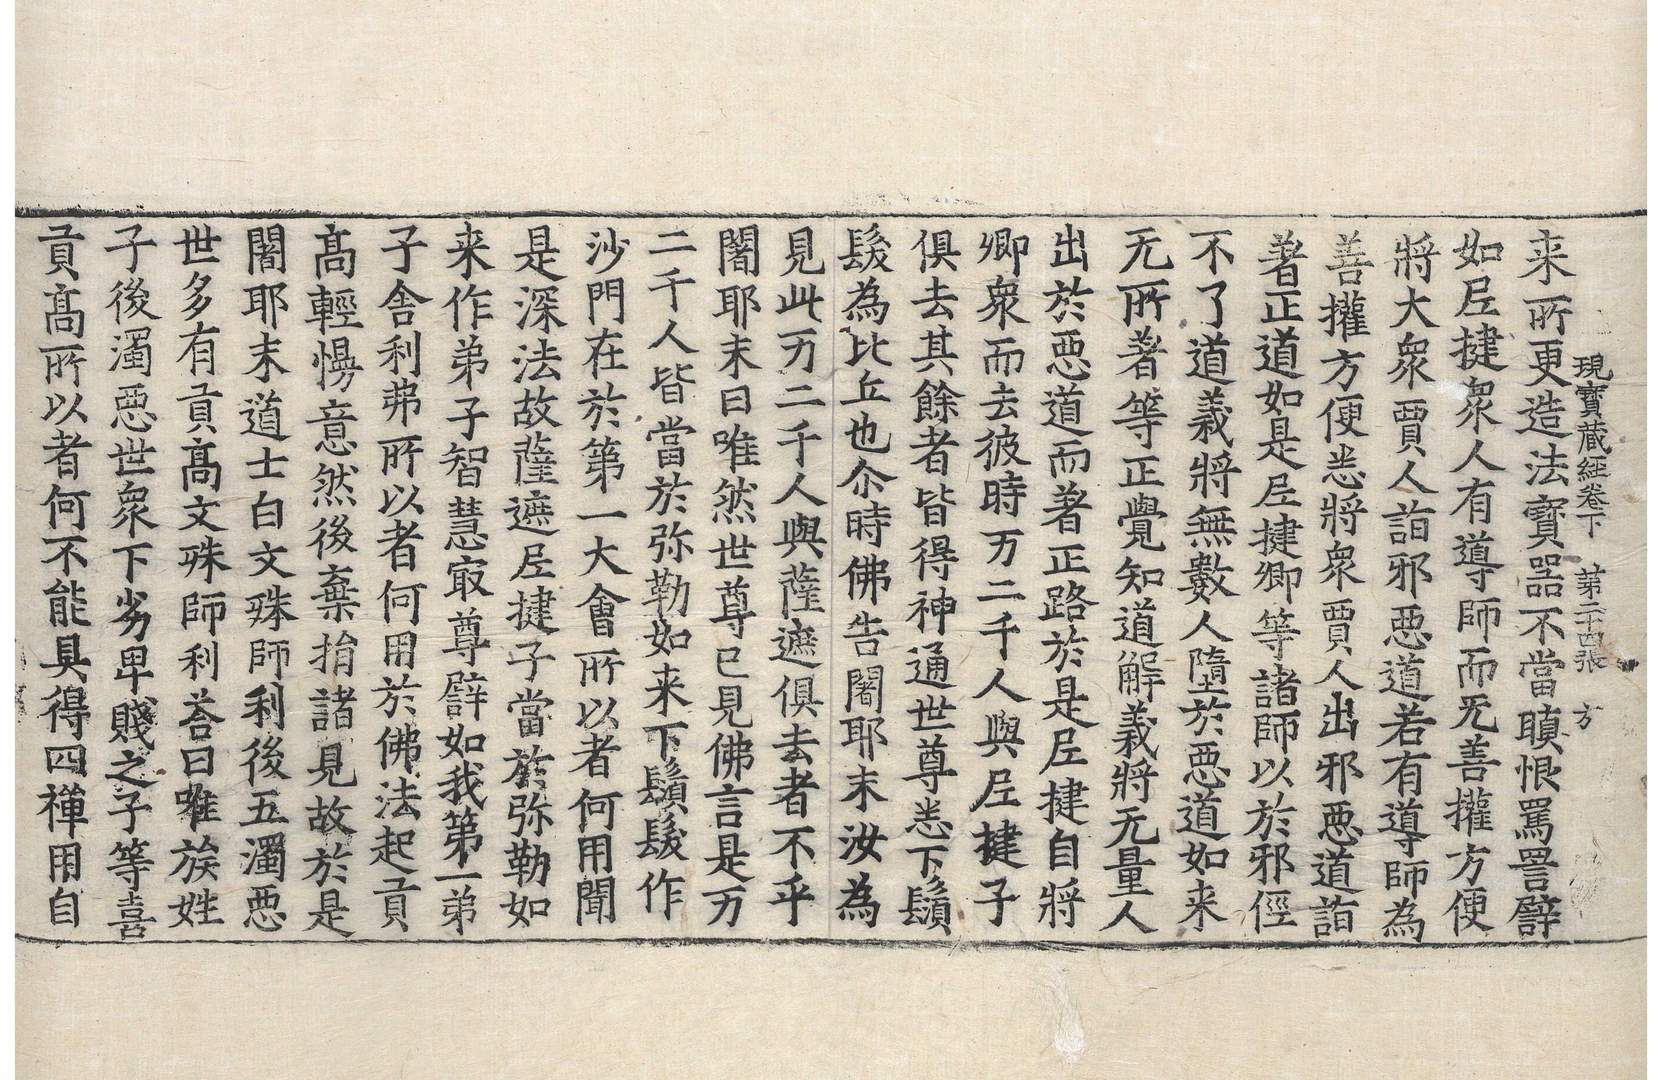 現寶藏經卷下 第二十四張 方
来所更造法寶器不當瞋恨罵詈譬
如𡰱揵衆人有導師而无善權方便
將大衆賈人詣邪惡道若有導師為
善權方便悉將衆賈人出邪惡道詣
著正道如是𡰱揵卿等諸師以於邪侱
不了道義將無數人墮於惡道如来
无所著等正覺知道解義將无量人
出於惡道而著正路於是𡰱揵自將
卿衆而去彼時万二千人與𡰱揵子
俱去其餘者皆得神通世尊悉下鬚
髮為比丘也尒時佛告闍耶末汝為
見此万二千人與薩遮俱去者不乎
闍耶末曰唯然世尊已見佛言是万
二千人皆當於弥勒如来下鬚髮作
沙門在於第一大會所以者何用聞
是深法故薩遮𡰱揵子當於弥勒如
来作弟子智慧㝡尊譬如我第一弟
子舍利弗所以者何用於佛法起貢
髙輕慢意然後棄捐諸見故於是
闍耶末道士白文殊師利後五濁惡
世多有貢髙文殊師利荅曰唯族姓
子後濁惡世衆下劣卑賤之子等喜
貢髙所以者何不能具得四禪用自